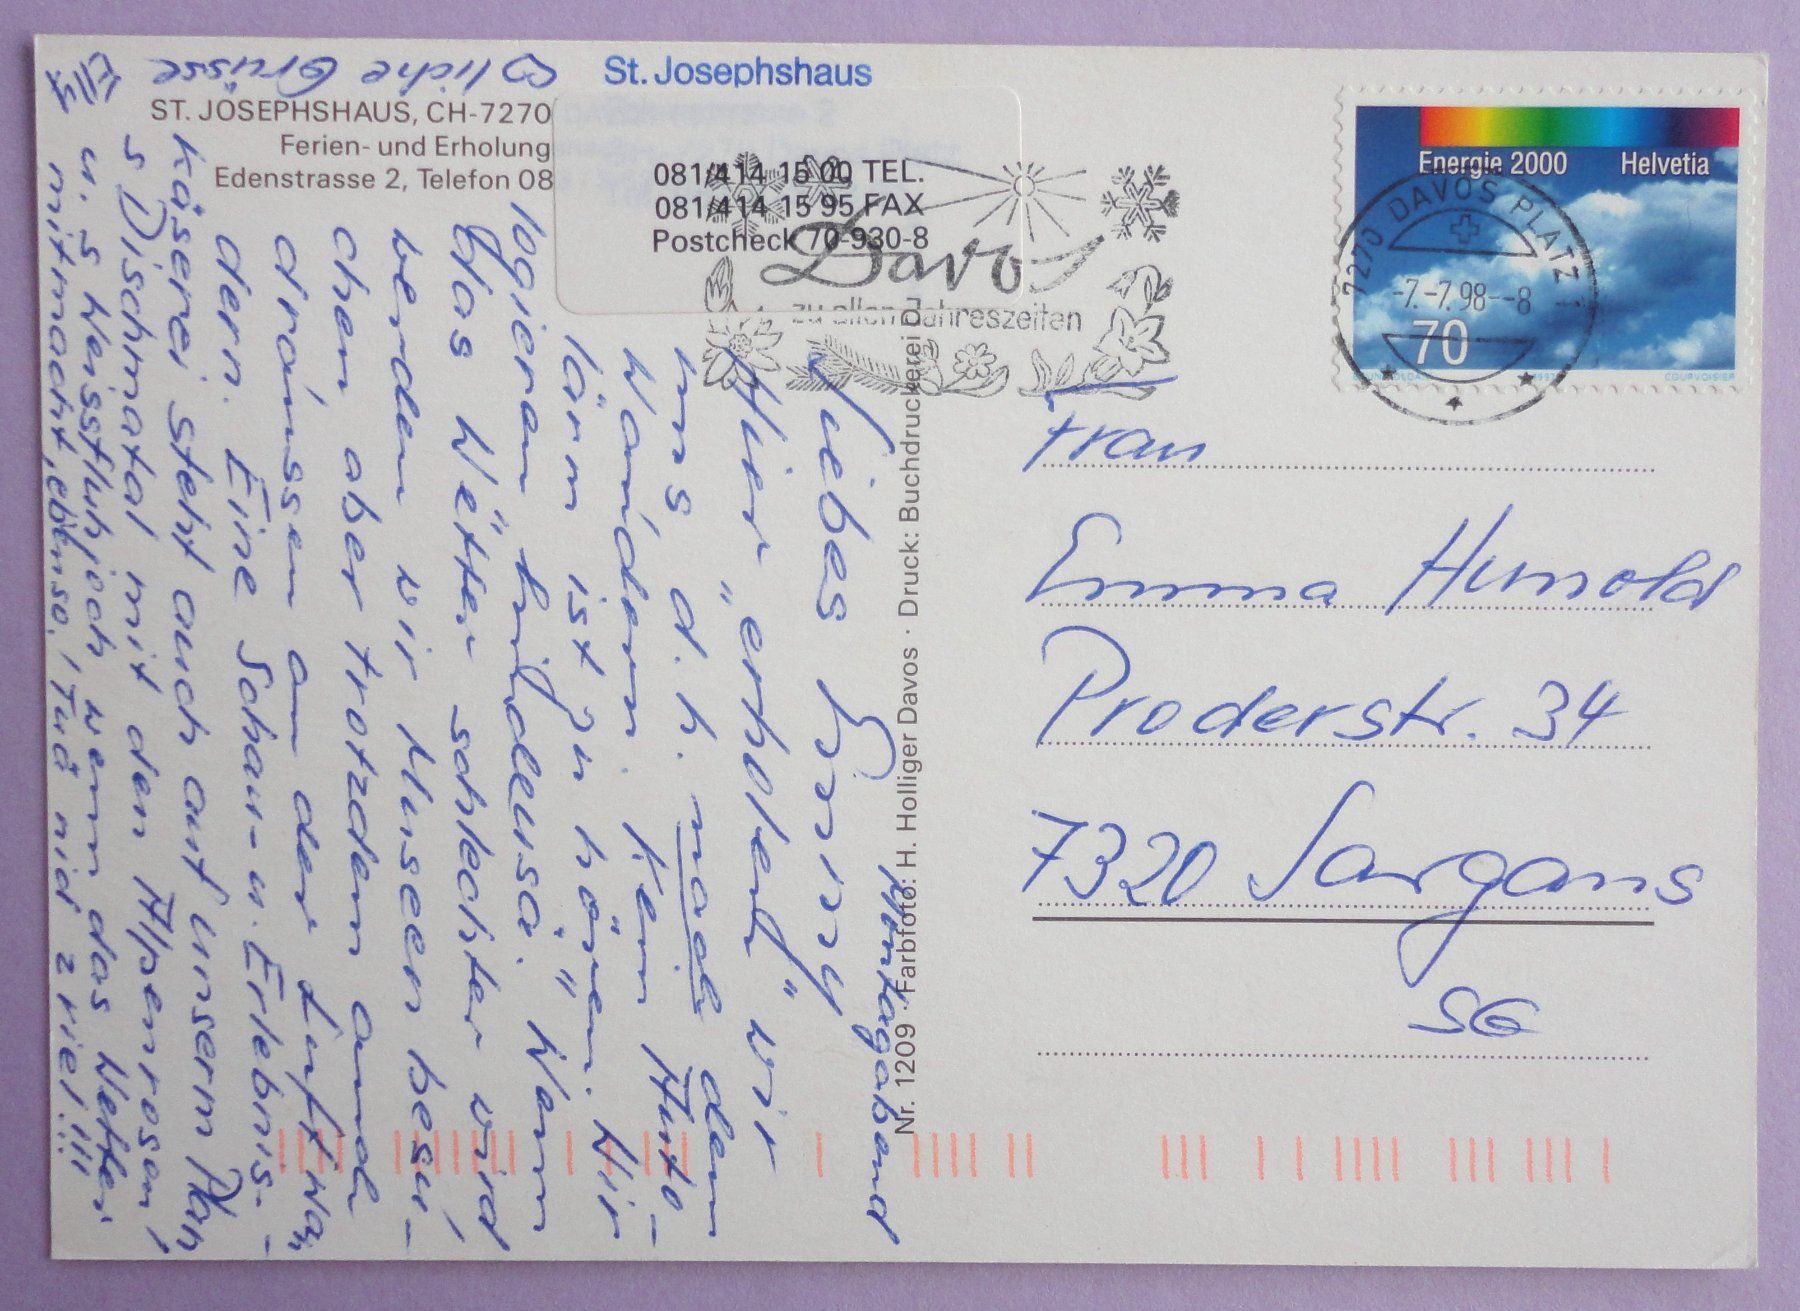 St. Josephshaus
ST. JOSEPHSHAUS, CH-7270
Ferien- und Erholung
Edenstrasse 2, Telefon 08
081/414 15 00 TEL.
081/414 15 95 FAX
Postcheck 70-930-8
Davos
zu allen Jahreszeiten
Energie 2000 Helvetia
7270 DAVOS PLATZ 1
-7.-7.98--8
70
COURVOISIER
Frau
Emma Hunold
Proderstr. 34
7320 Sargans
SG
Nr. 1209 · Farbfoto: H. Holliger Davos · Druck: Buchdruckerei D
Montagabend
Liebes
Hier "erholed" wir
ins d.h. nach dem
Wandern. Kein Auto-
lärm ist zu hören. Wir
logieren hindeusä. Wenn
das Wetter schlechter wird
werden wir Museen besu-
chen aber trotzdem amel
draussen an der Luft wan
dern. Eine Schau- u. Erlebnis-
käserei steht auch auf unserm Plan
s Dischmatal mit den Alpenrosen!
u. s Weissfluhjoch wenn das Wetter
mitmacht, ebenso. I tuä nid z viel!!!
♡liche Grüsse
Elly